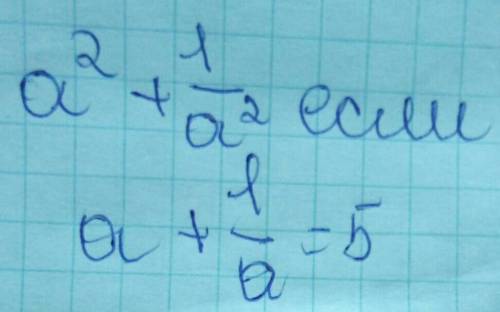 a² + 1/a² если
a + 1/a = 5